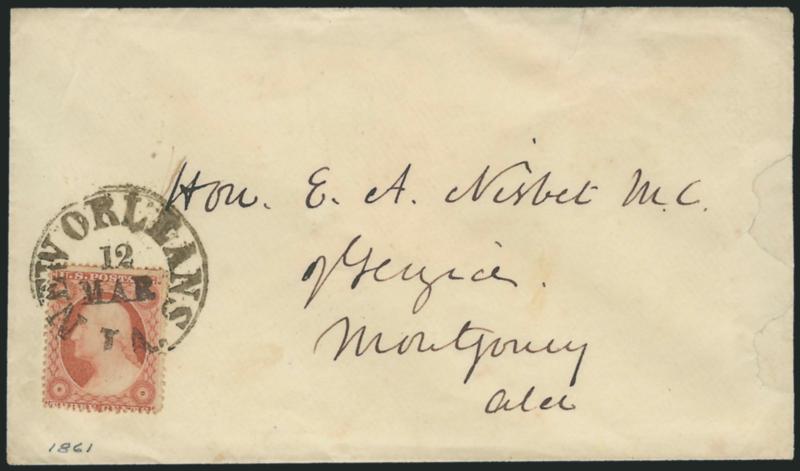 NEW ORLEANS
12
MAR
LA.
U.S. POSTAGE
THREE CENTS
Hon. E. A. Nisbet M.C.
of Georgia.
Montgomery
Ala
1861